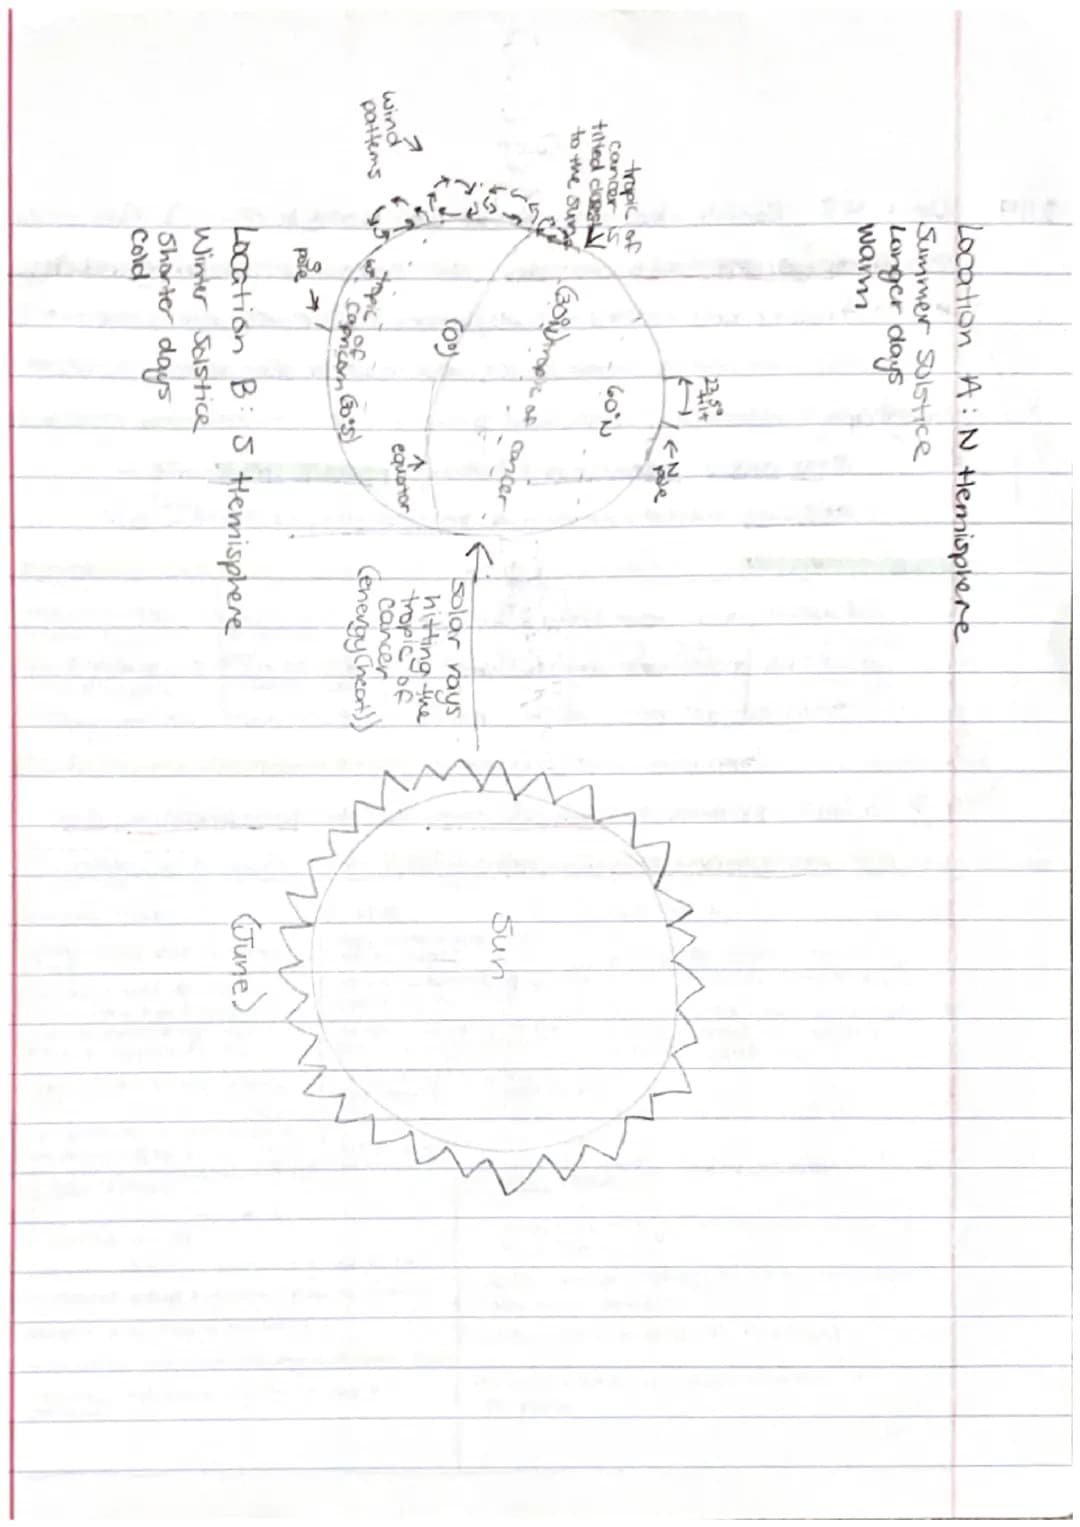 Location A: N Hemisphere
Summer Solstice
Longer days
Warm
tropic of
cancer is
tilted closest
to the sun
23.5°
tilt
N
pole
60°N
(30°N) tropic of cancer
(0°)
equator
tropic
of
capricorn (30°S)
wind
patterns
S
pole
solar rays
hitting the
tropic of
cancer
(energy (heat))
Sun
(June)
Location B: S Hemisphere
Winter Solstice
Shorter days
Cold